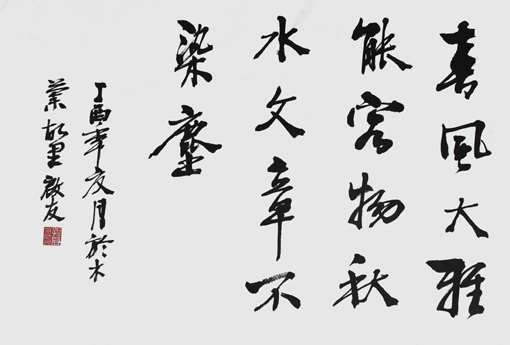 春風大雅
能容物秋
水文章不
染塵
丁酉年夏月於木
蘭故里啟友